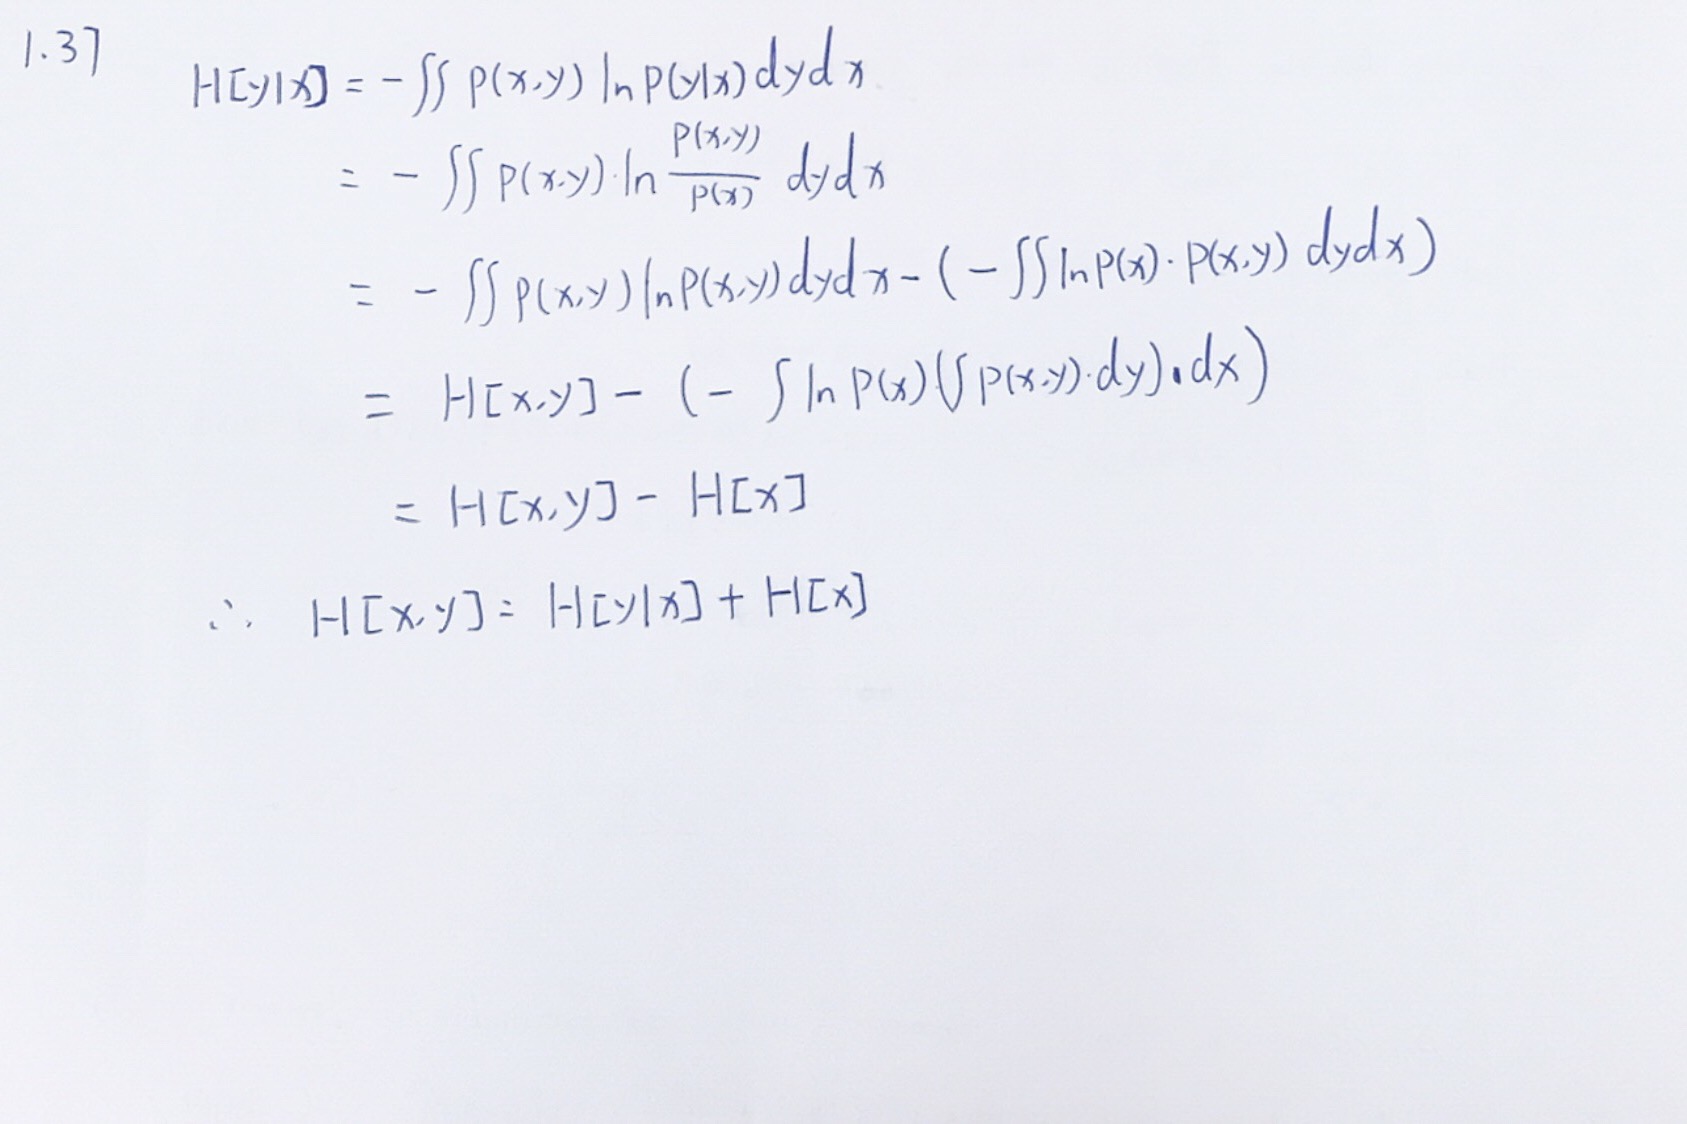 1.37
H[y|x] = - ∬ p(x,y) ln p(y|x) dy dx
= - ∬ p(x,y) · ln \frac{p(x,y)}{p(x)} dy dx
= - ∬ p(x,y) ln p(x,y) dy dx - ( - ∬ ln p(x) · p(x,y) dy dx )
= H[x,y] - ( - ∫ ln p(x) (∫ p(x,y) · dy) · dx )
= H[x,y] - H[x]
∴ H[x,y] = H[y|x] + H[x]